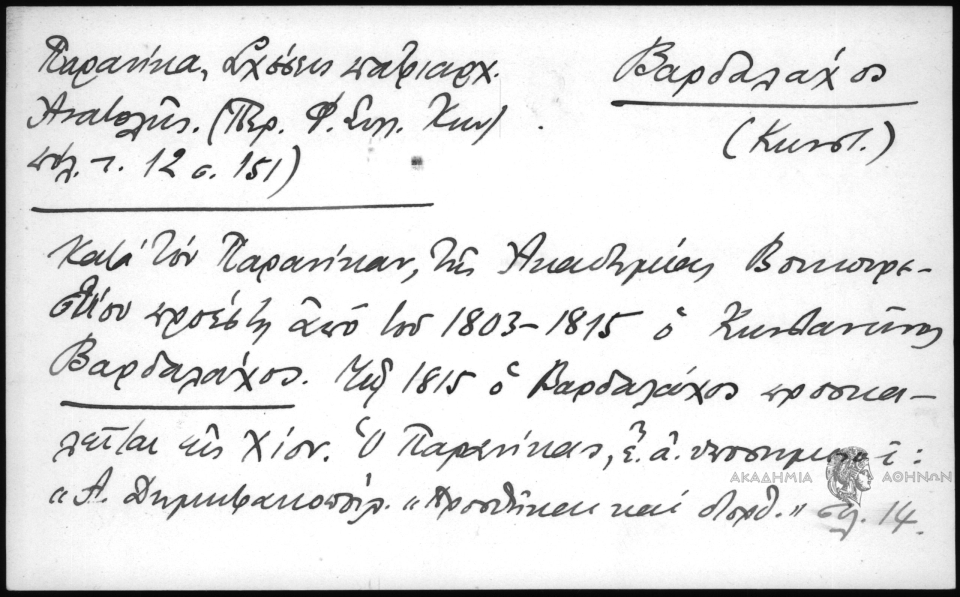 Παρανίκα, Σχέσεις πατριαρχ.
Ανατολῆς. (Περ. Φ. Συλ. Κων)
πόλ. τ. 12 σ. 151)
Βαρδαλάχος
(Κωνστ.)
Κατά τόν Παρανίκαν, τῆς Ἀκαδημίας Βουκουρε-
στίου προέστη ἀπό τοῦ 1803-1815 ὁ Κωνσταντῖνος
Βαρδαλάχος. Τῷ 1815 ὁ Βαρδαλάχος προσκα-
λεῖται εἰς Χίον. Ὁ Παρανίκας, ἔ. ἀ. ὑποσημειοῖ:
"Α. Δημητρακοπούλ. "Προσθῆκαι καί διορθ." σελ. 14.
ΑΚΑΔΗΜΙΑ ΑΘΗΝΩΝ